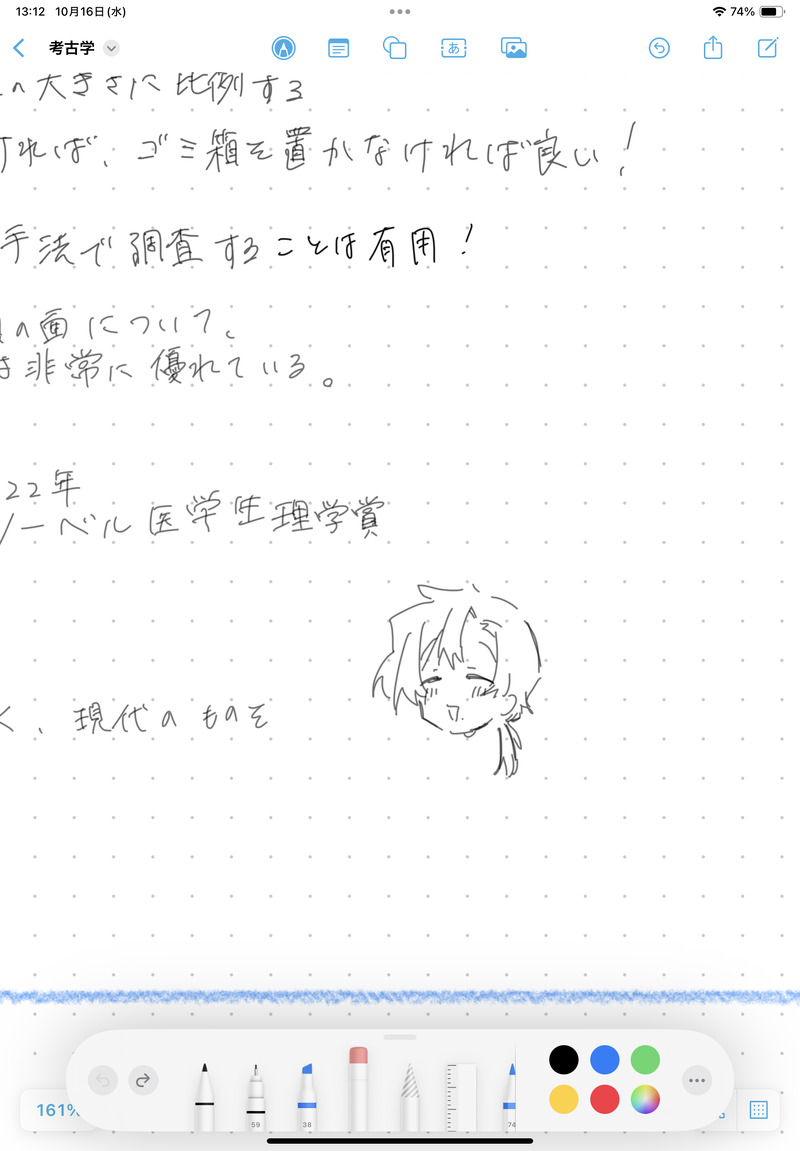 13:12 10月16日(水)
74%
考古学
あ
の大きさに比例する
ければ、ゴミ箱を置かなければ良い!
手法で調査することは有用!
の面について、
非常に優れている。
22年
ノーベル医学生理学賞
く、現代のものを
161%
59
38
74